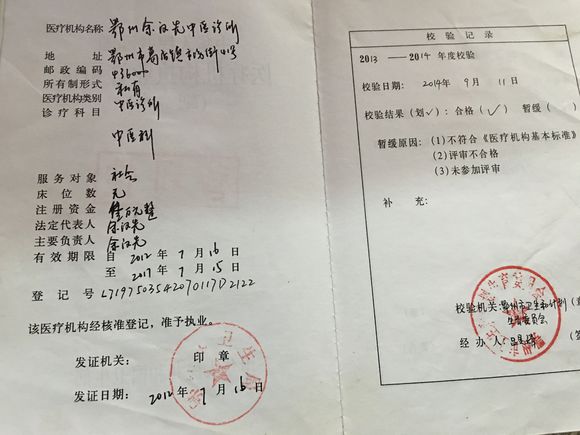 医疗机构名称 鄂州余汉先中医诊所
地址 鄂州市葛店镇市政街41号
邮政编码
所有制形式 私有
医疗机构类别 中医诊所
诊疗科目
中医科
服务对象 社会
床位数 无
注册资金 整
法定代表人 余汉先
主要负责人 余汉先
有效期限 自 2012 年 7 月 16 日
至 2017 年 7 月 15 日
登记号 L7197503542070117D2122
该医疗机构经核准登记，准予执业。
发证机关： 印章
发证日期： 2012 年 7 月 16 日
校验记录
2013 — 2014 年度校验
校验日期： 2014 年 9 月 11 日
校验结果（划√）：合格（√） 暂缓（
暂缓原因：(1)不符合《医疗机构基本标准》
(2)评审不合格
(3)未参加评审
补充：
校验机关：鄂州市卫生和计划
生育委员会
经办人：